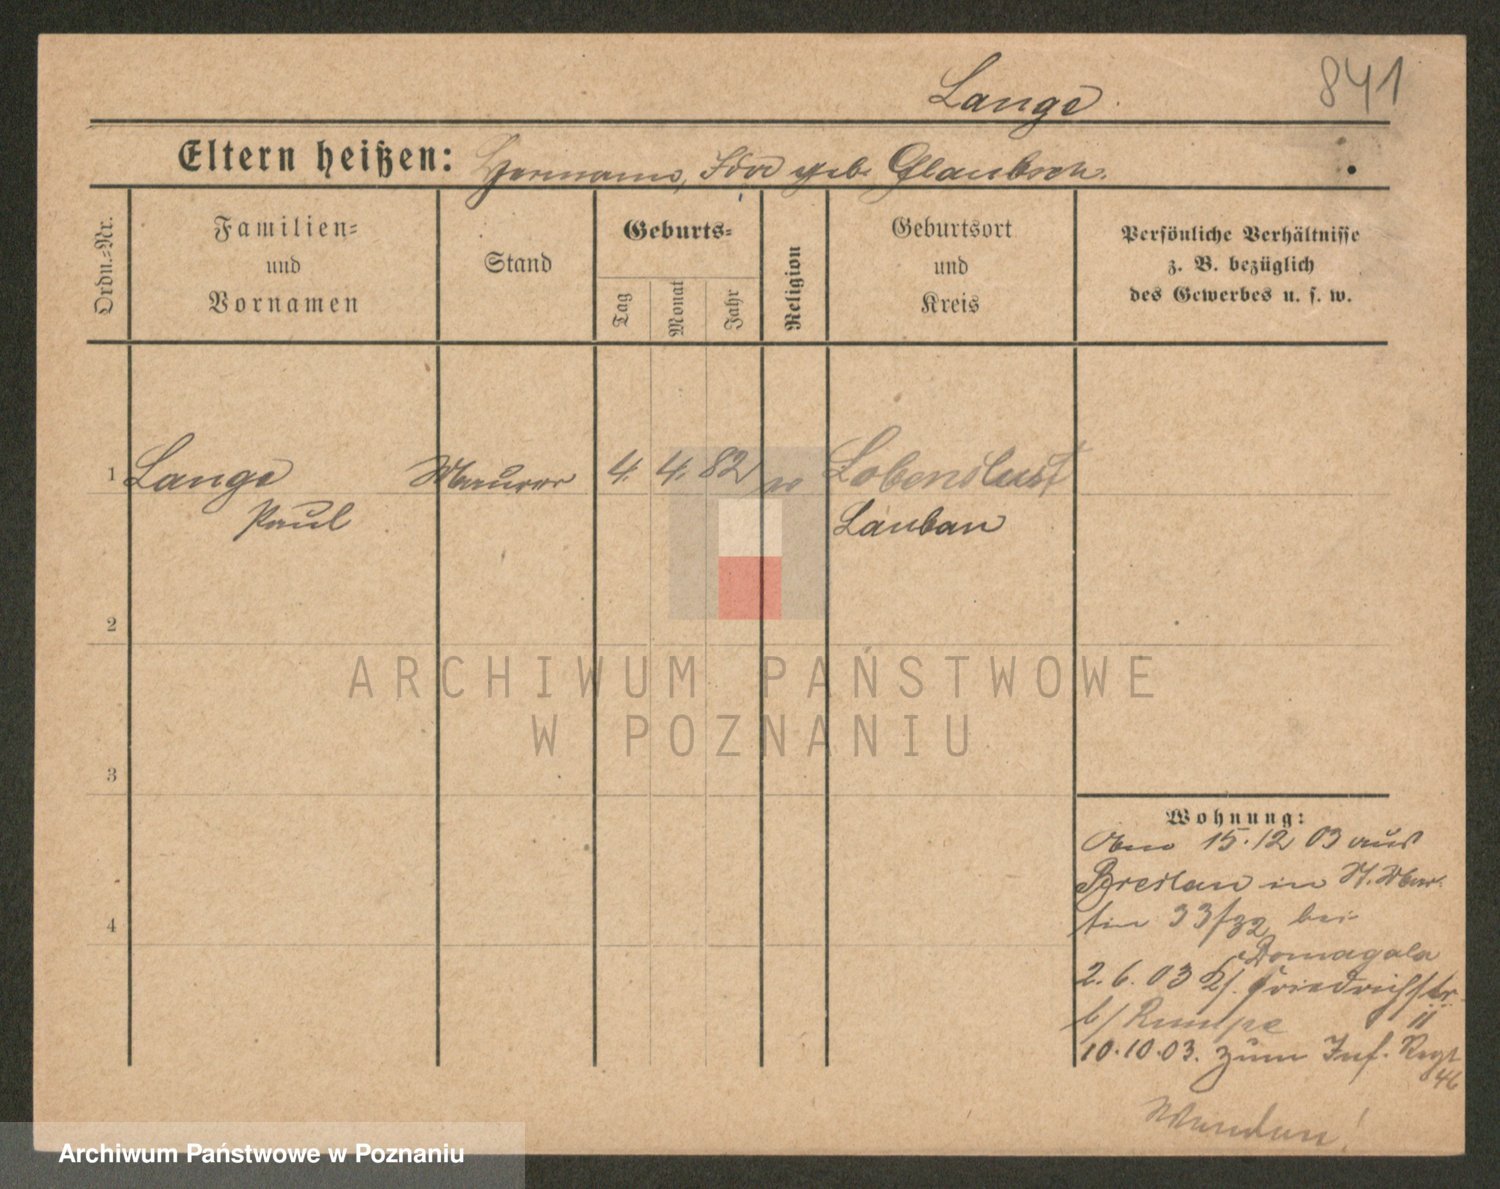 Lange
841
Eltern heißen: Hermann, Ida geb. Glaubsch.
Ordn.-Nr.
Familien-
und
Vornamen
Stand
Geburts-
Tag
Monat
Jahr
Religion
Geburtsort
und
Kreis
Persönliche Verhältnisse
z. B. bezüglich
des Gewerbes u. s. w.
1 Lange Maurer 4. 4. 82 Lobenslust
Paul Lauban
2
3
4
Wohnung:
15.12 03 aus
Breslau in St. Mar-
tin 33 bei
Domagala
2.6.03 Friedrichstr.
b/ 11
10.10.03. zum Inf. Regt
46
ARCHIWUM PAŃSTWOWE
W POZNANIU
Archiwum Państwowe w Poznaniu